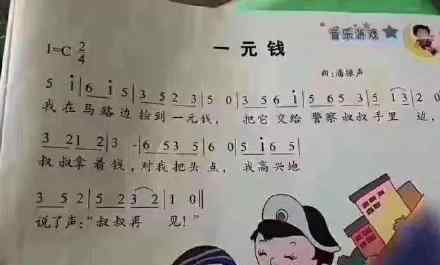 音乐游戏
1=C 2/4
一元钱
曲:潘振声
5 i | 6 i 5 | 3 5 2 3 | 5 0 | 3 5 6 i | 5 6 5 3 5 | 1 3 | 2 0
我在马路边捡到一元钱, 把它交给警察叔叔手里边,
3 21 2 | 3 - | 6 53 5 | 6 0 | 5 i 6 5 |
叔叔拿着钱,对我把头点, 我高兴地
3 5 2 | 5 2 3 2 | 1 0 ||
说了声:“叔叔再见!”